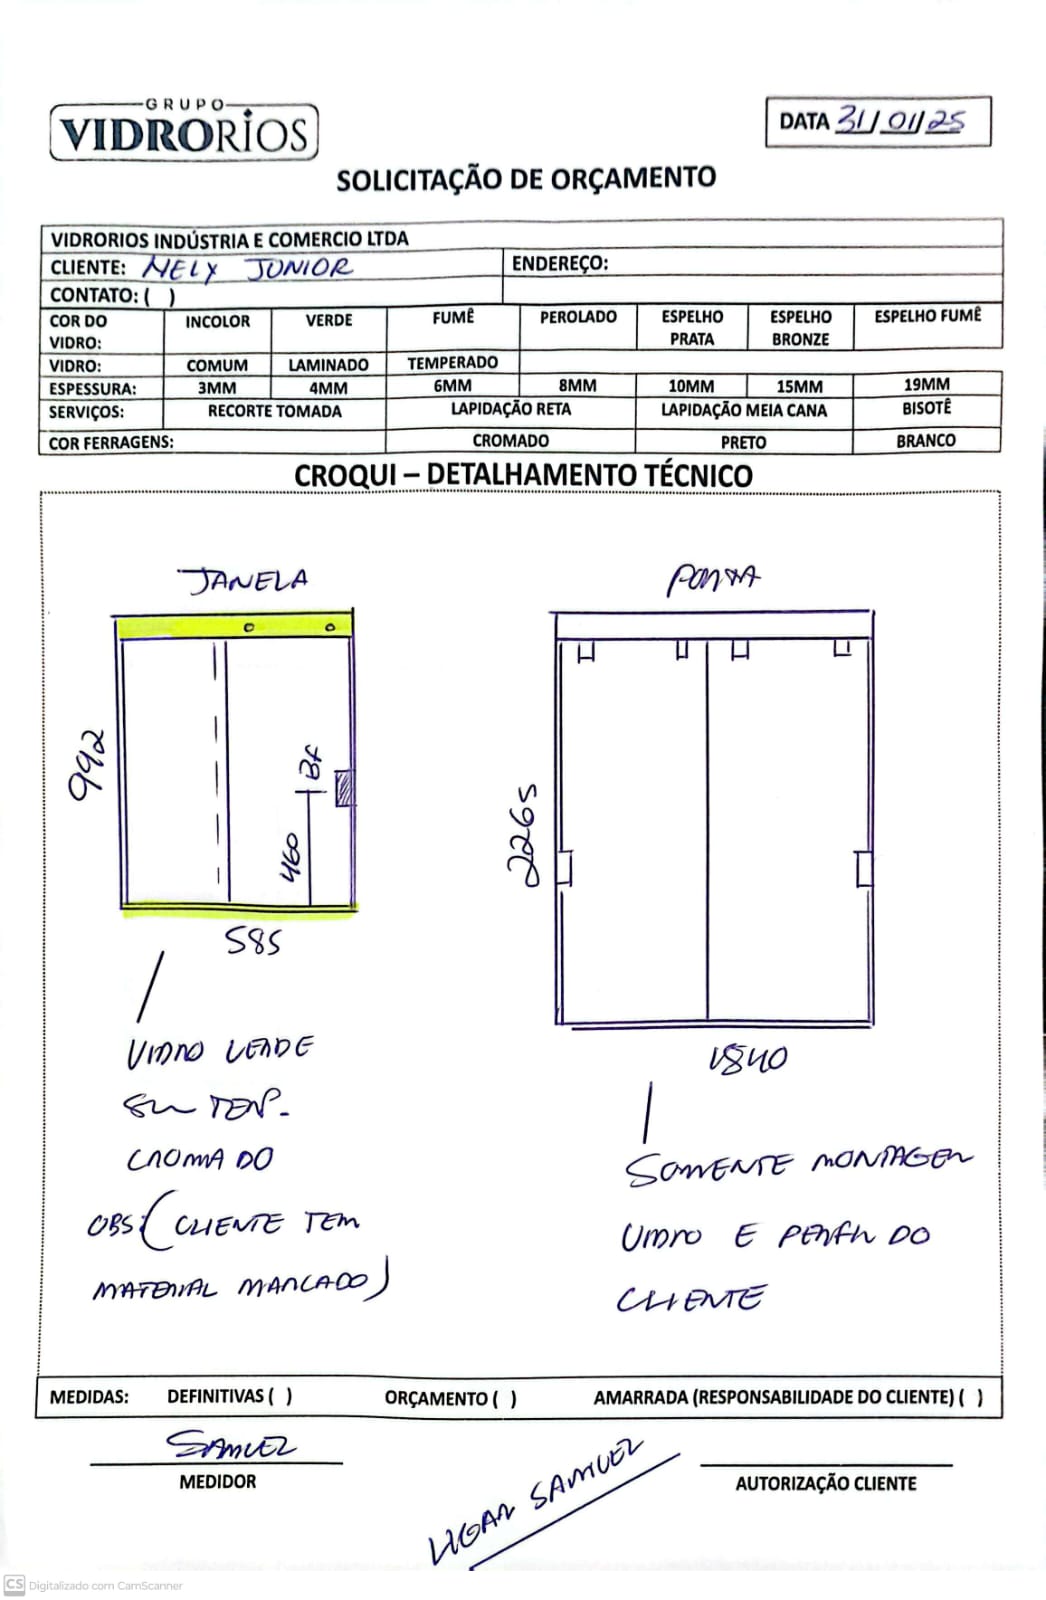 GRUPO
VIDRORIOS
DATA 31/01/25
SOLICITAÇÃO DE ORÇAMENTO
VIDRORIOS INDÚSTRIA E COMERCIO LTDA
CLIENTE: NELY JUNIOR ENDEREÇO:
CONTATO: ( )
COR DO VIDRO: INCOLOR VERDE FUMÊ PEROLADO ESPELHO PRATA ESPELHO BRONZE ESPELHO FUMÊ
VIDRO: COMUM LAMINADO TEMPERADO
ESPESSURA: 3MM 4MM 6MM 8MM 10MM 15MM 19MM
SERVIÇOS: RECORTE TOMADA LAPIDAÇÃO RETA LAPIDAÇÃO MEIA CANA BISOTÊ
COR FERRAGENS: CROMADO PRETO BRANCO
CROQUI – DETALHAMENTO TÉCNICO
JANELA
992
BF
460
585
VIDRO VERDE
8m TEMP.
CROMADO
OBS: (CLIENTE TEM
MATERIAL MARCADO)
PORTA
2265
1840
SOMENTE MONTAGEM
VIDRO E PERFIL DO
CLIENTE
MEDIDAS: DEFINITIVAS ( ) ORÇAMENTO ( ) AMARRADA (RESPONSABILIDADE DO CLIENTE) ( )
SAMUEL
MEDIDOR
LIGAR SAMUEL
AUTORIZAÇÃO CLIENTE
CS Digitalizado com CamScanner